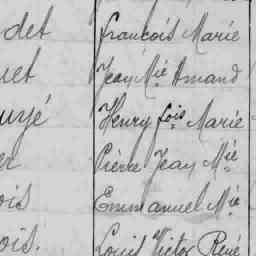 det François Marie
uet Jean Mie Amand
uyé Henry fois Marie
er Pierre Jean Mie
ois Emmanuel Mie
ois. Louis Victor René